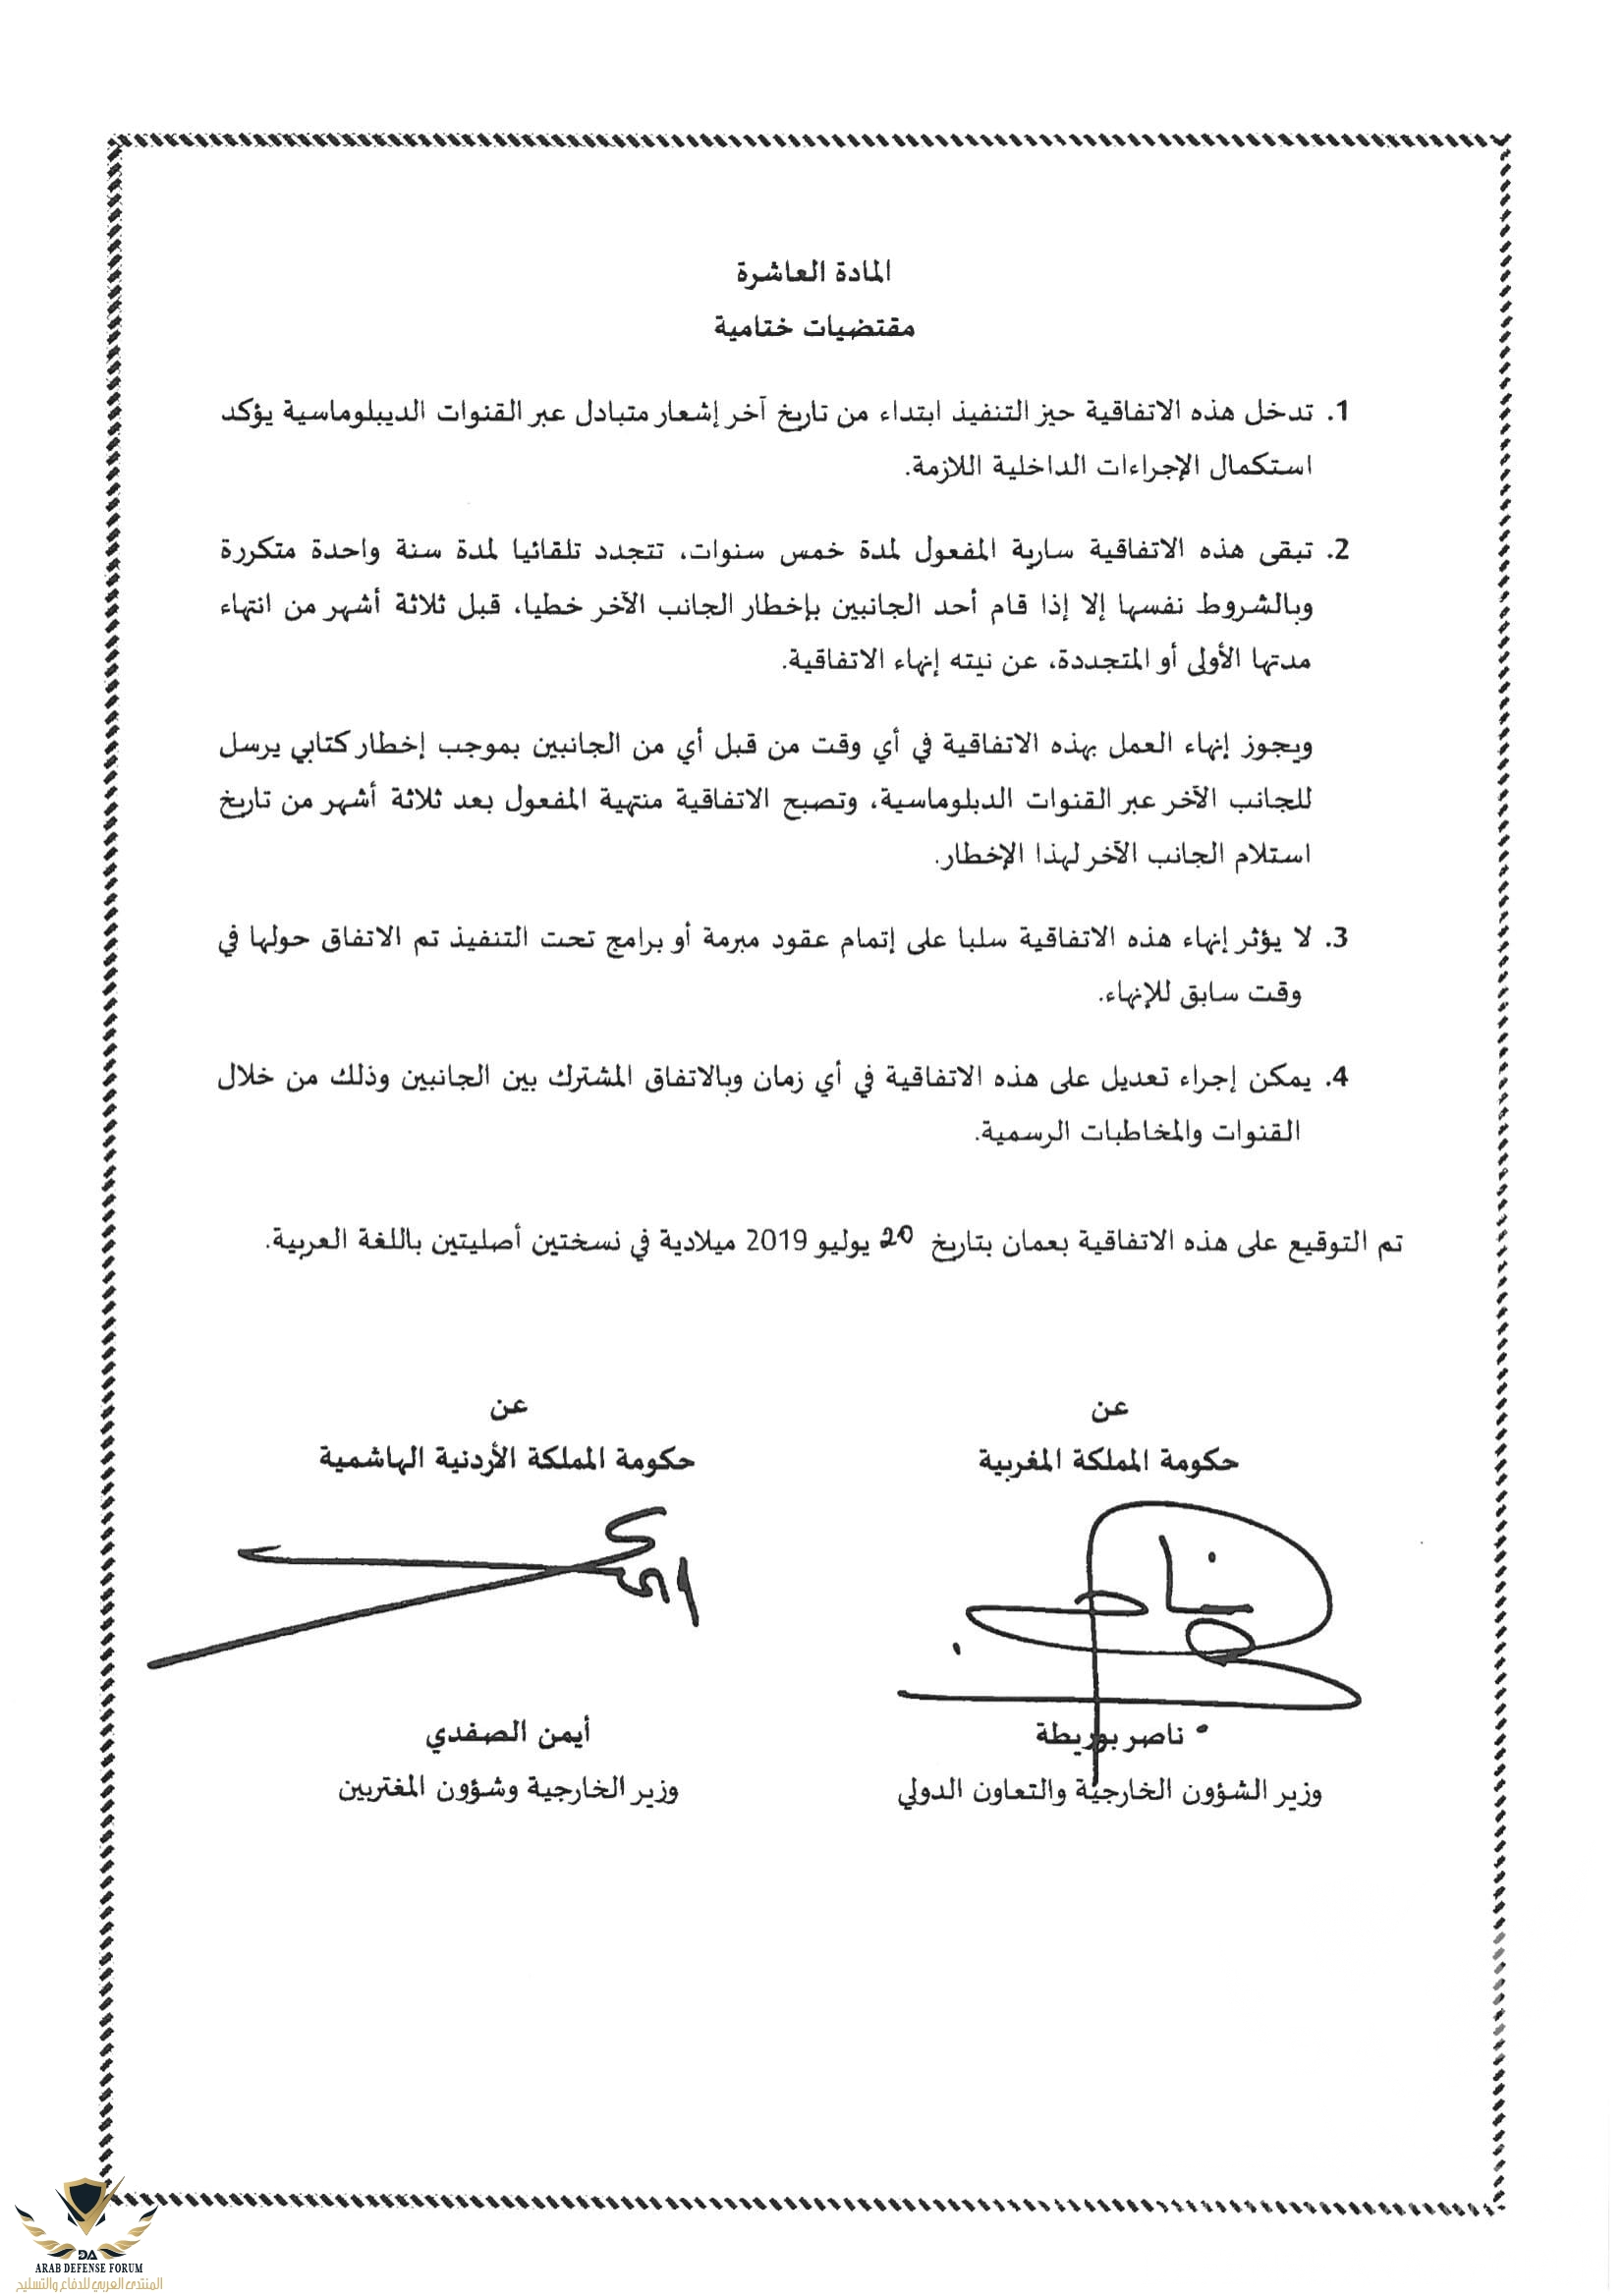 المادة العاشرة
مقتضيات ختامية
1. تدخل هذه الاتفاقية حيز التنفيذ ابتداء من تاريخ آخر إشعار متبادل عبر القنوات الديبلوماسية يؤكد
استكمال الإجراءات الداخلية اللازمة.
2. تبقى هذه الاتفاقية سارية المفعول لمدة خمس سنوات، تتجدد تلقائيا لمدة سنة واحدة متكررة
وبالشروط نفسها إلا إذا قام أحد الجانبين بإخطار الجانب الآخر خطيا، قبل ثلاثة أشهر من انتهاء
مدتها الأولى أو المتجددة، عن نيته إنهاء الاتفاقية.
ويجوز إنهاء العمل بهذه الاتفاقية في أي وقت من قبل أي من الجانبين بموجب إخطار كتابي يرسل
للجانب الآخر عبر القنوات الدبلوماسية، وتصبح الاتفاقية منتهية المفعول بعد ثلاثة أشهر من تاريخ
استلام الجانب الآخر لهذا الإخطار.
3. لا يؤثر إنهاء هذه الاتفاقية سلبا على إتمام عقود مبرمة أو برامج تحت التنفيذ تم الاتفاق حولها في
وقت سابق للإنهاء.
4. يمكن إجراء تعديل على هذه الاتفاقية في أي زمان وبالاتفاق المشترك بين الجانبين وذلك من خلال
القنوات والمخاطبات الرسمية.
تم التوقيع على هذه الاتفاقية بعمان بتاريخ 20 يوليو 2019 ميلادية في نسختين أصليتين باللغة العربية.
عن
حكومة المملكة المغربية
ناصر بوريطة
وزير الشؤون الخارجية والتعاون الدولي
عن
حكومة المملكة الأردنية الهاشمية
أيمن الصفدي
وزير الخارجية وشؤون المغتربين
DA
ARAB DEFENSE FORUM
المنتدى العربي للدفاع والتسليح